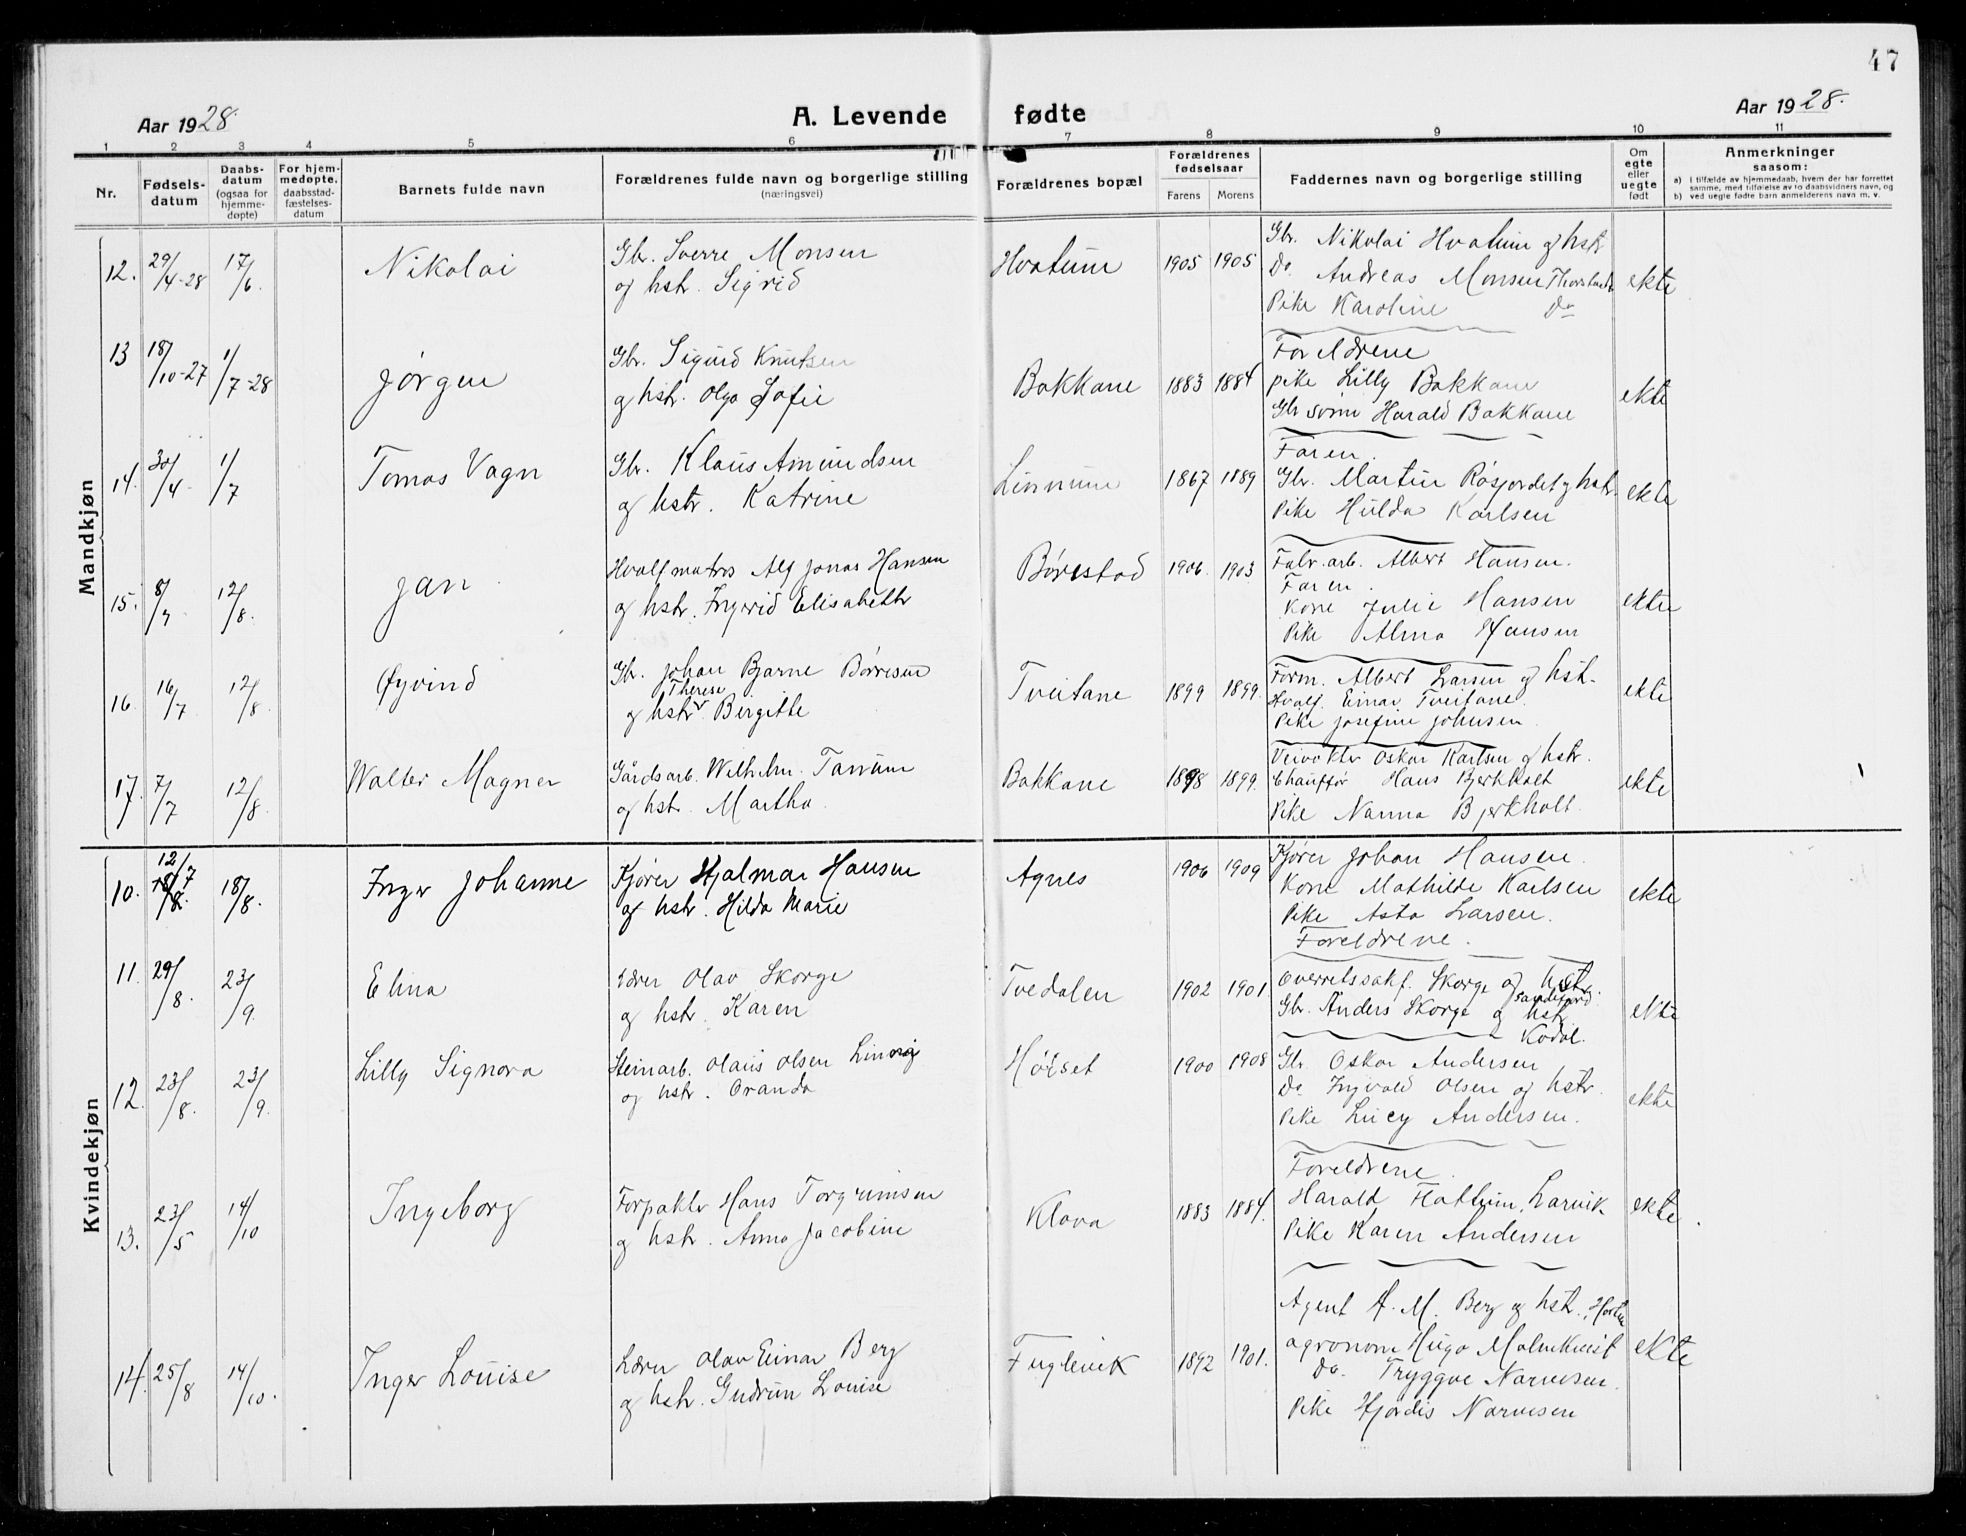 47
Aar 1928.
A. Levende fødte
Aar 1928.
1 2 3 4 5 6 7 8 9 10 11
Nr.
Fødsels-
datum
Daabs-
datum
(ogsaa for
hjemme-
døpte)
For hjem-
medøpte.
daabsstad-
fæstelses-
datum
Barnets fulde navn
Forældrenes fulde navn og borgerlige stilling
(næringsvei)
Forældrenes bopæl
Forældrenes
fødselsaar
Farens Morens
Faddernes navn og borgerlige stilling
Om
egte
eller
uegte
født
Anmerkninger
saasom:
a) i tilfælde av hjemmedaab, hvem der har forrettet
samme, med tilføielse av to daabsvidners navn, og
b) ved uegte fødte barn anmelderens navn m. v.
Mandkjøn
12. 29/4-28 17/6. Nikolai
Gbr. Sverre Monsen
og hstr. Sigrid
Hvatum 1905 1905
Gbr. Nikolai Hvatum og hstr
Do. Andreas Monsen
Pike Karoline Do
ekte
13 18/10-27 1/7-28 Jørgen
Gbr. Sigurd Knutsen
og hstr. Olga Sofie
Bakkane 1883 1884
Foreldrene
pike Lilly Bakkane
Gbr sønn Harald Bakkane
ekte
14. 30/4 1/7 Tomas Vagn
Gbr. Klaus Amundsen
og hstr. Katrine
Linnum 1867 1889
Faren.
Gbr. Martin Røsjordet og hstr.
Pike Hulda Karlsen
ekte
15. 8/7 12/8. Jan
Hvalf matros Alf Jonas Hansen
og hstr. Ingerid Elisabeth
Børestad 1906. 1903
Fabr. arb. Albert Hansen.
Faren.
Kone Julie Hansen
Pike Alma Hansen
ekte
16. 16/7 12/8. Øyvind
Gbr. Johan Bjarne Børresen
Therese
og hstr. Bergitte
Tveitane 1899 1899.
Form. Albert Larsen og hst.
Hvalf. Einar Tveitane
Pike Josefine Johnsen.
ekte
17. 7/7 12/8. Walter Magner
Gårdsarb. Wilhelm. Tanum
og hstr. Martha.
Bakkane 1898 1899.
Veivokter Oskar Karlsen og hstr.
Chauffør Hans Bjerkholt
Pike Nanna Bjerkholt.
ekte
Kvindekjøn
10. 12/7 18/8. Inger Johanne
Kjører Hjalmar Hansen
og hstr. Hilda Marie
Agnes 1906 1909
Kjører Johan Hansen.
Kone Mathilde Karlsen
Pike Asta Larsen.
Foreldrene.
ekte
11. 29/8. 23/9. Elina
Lærer Olav Skorge
og hstr. Karen
Tvedalen 1902 1901
Overretssakf. Skorge og hstr.
Sandefjord.
Gbr. Anders Skorge og hstr
Kodal.
ekte
12. 23/8. 23/9. Lilly Signora
Steinarb. Olaus Olsen
og hstr. Oranda
Hølset 1900 1908
Gbr. Oskar Andersen
Do. Ingvald Olsen og hstr.
Pike Lucy Andersen.
ekte
13. 23/5 14/10 Ingeborg
Forpakter Hans Torgrimsen
og hstr. Anna Jacobine
Klova 1883 1884.
Foreldrene.
Harald Hattum, Larvik
Pike Karen Andersen
ekte.
14. 25/8 14/10. Inger Louise
Lærer Olav Einar Berg
og hstr. Gudrun Louise
Fuglevik 1892 1901.
Agent A. M. Berg og hstr., Horten
agronom Hugo Malmkvist
Do. Tryggve Narvesen.
Pike Hjørdis Narvesen
ekte